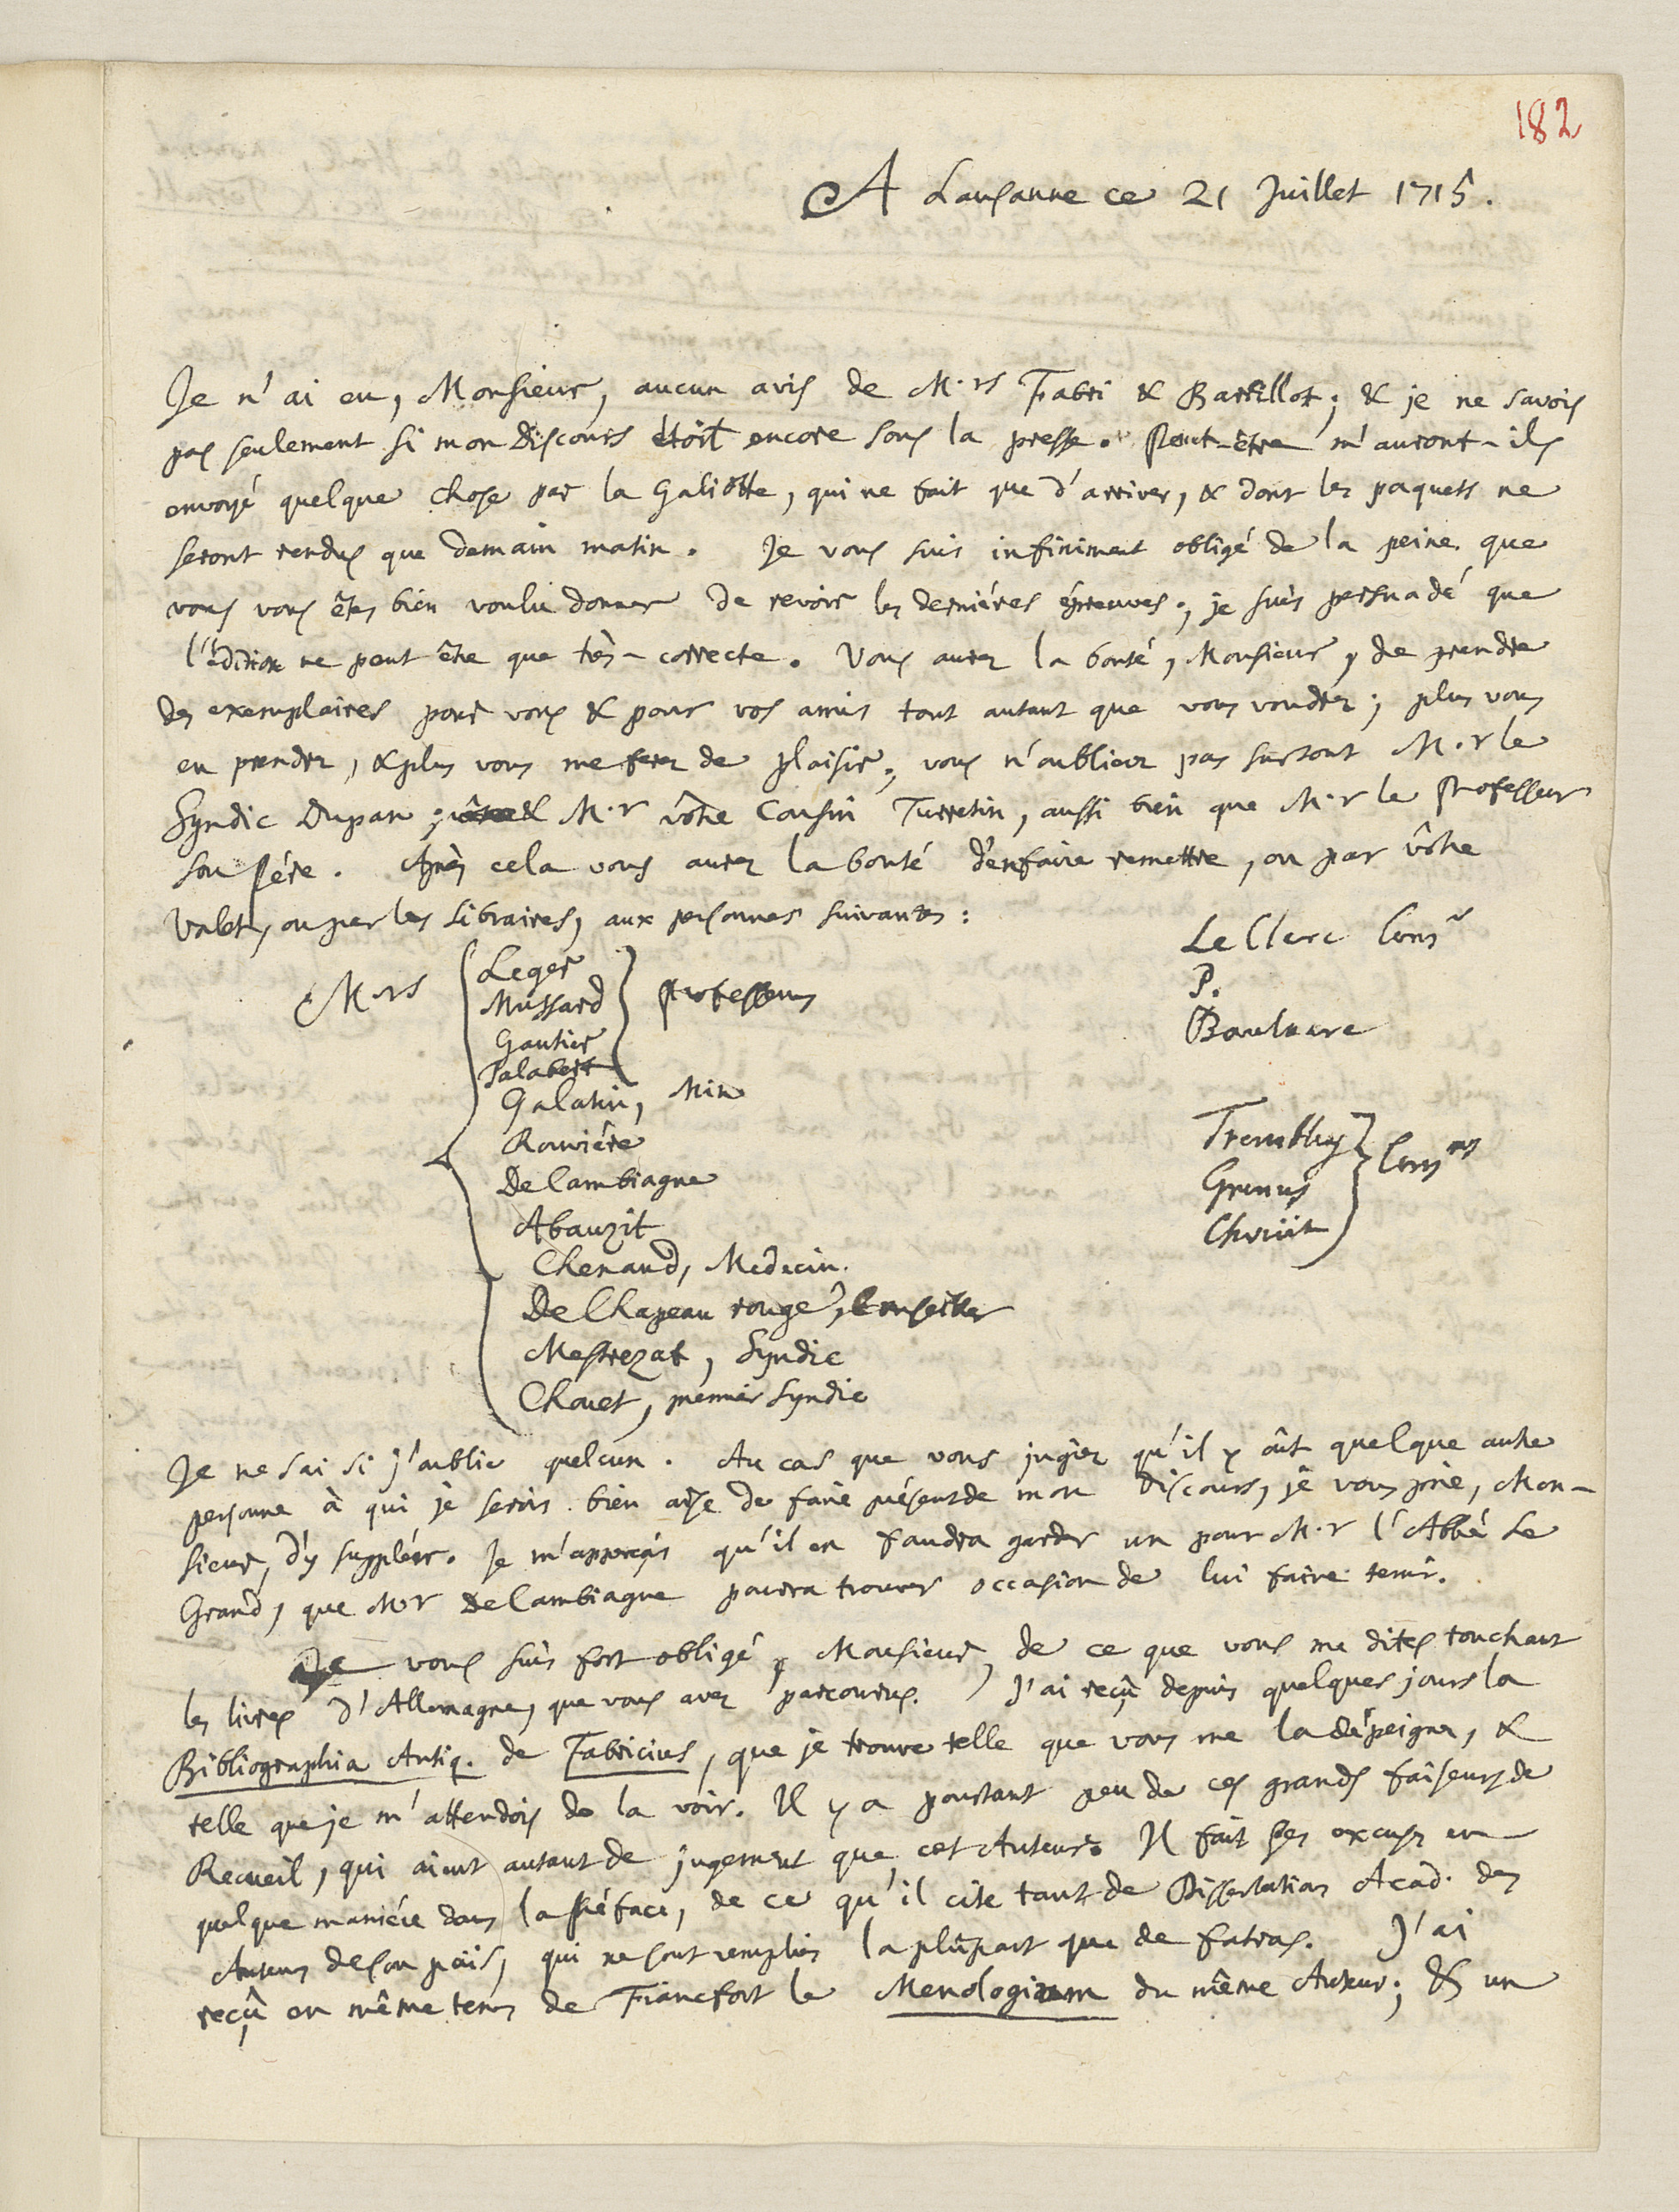 182
A Lausanne ce 21 Juillet 1715.
Je n'ai eu, Monsieur, aucun avis de M.rs Fabri & Barrillot; & je ne savois
pas seulement si mon Discours étoit encore sous la presse. Peut-être m'auront-ils
envoyé quelque chose par la Galiotte, qui ne fait que d'arriver, & dont les paquets ne
seront rendus que demain matin. Je vous suis infiniment obligé de la peine que
vous vous êtes bien voulu donner de revoir les derniéres épreuves; je suis persuadé que
l'édition ne peut être que très-correcte. Vous aurez la bonté, Monsieur, de prendre
des exemplaires pour vous & pour vos amis tout autant que vous voudrez; plus vous
en prendrez, & plus vous me ferez de plaisir; vous n'oublierez pas surtout M.r le
Syndic Dupan, & M.r vôtre Cousin Turretin, aussi bien que M.r le Professeur
son Pére. Après cela vous aurez la bonté d'en faire remettre, ou par vôtre
Valet, ou par les Libraires, aux personnes suivantes:
M.rs
Leger
Mussard
Gautier
Jalabert
Professeurs
Galatin, Min
Rouviére
De Lambiagne
Abauzit
Chenaud, Médecin.
De Chapeau rouge, Conseiller
Mestrezat, Syndic
Chouet, premier Syndic
Le Clerc Cons.r
P.
Baulacre
Trembley
Grenus
Chouët
Cons.rs
Je ne sai si j'oublie quelcun. Au cas que vous jugiez qu'il y aît quelque autre
personne à qui je serois bien aise de faire présent de mon Discours, je vous prie, Mon-
sieur, d'y suppléer. Je m'apperçois qu'il en faudra garder un pour M.r l'Abbé Le
Grand, que M.r De Lambiagne pourra trouver occasion de lui faire tenir.
Je vous suis fort obligé, Monsieur, de ce que vous me dites touchant
les livres d'Allemagne, que vous avez parcourus. J'ai reçû depuis quelques jours la
Bibliographia Antiq. de Fabricius, que je trouve telle que vous me la dépeignez, &
telle que je m'attendois de la voir. Il y a pourtant peu de ces grands faiseurs de
Recueil, qui aient autant de jugement que cet Auteur. Il fait ses excuses en
quelque maniére dans la Préface, de ce qu'il cite tant de Dissertations Acad. des
Auteurs de son païs, qui ne sont remplies la plûpart que de fatras. J'ai
reçû en même tems de Francfort le Menologium du même Auteur; & un